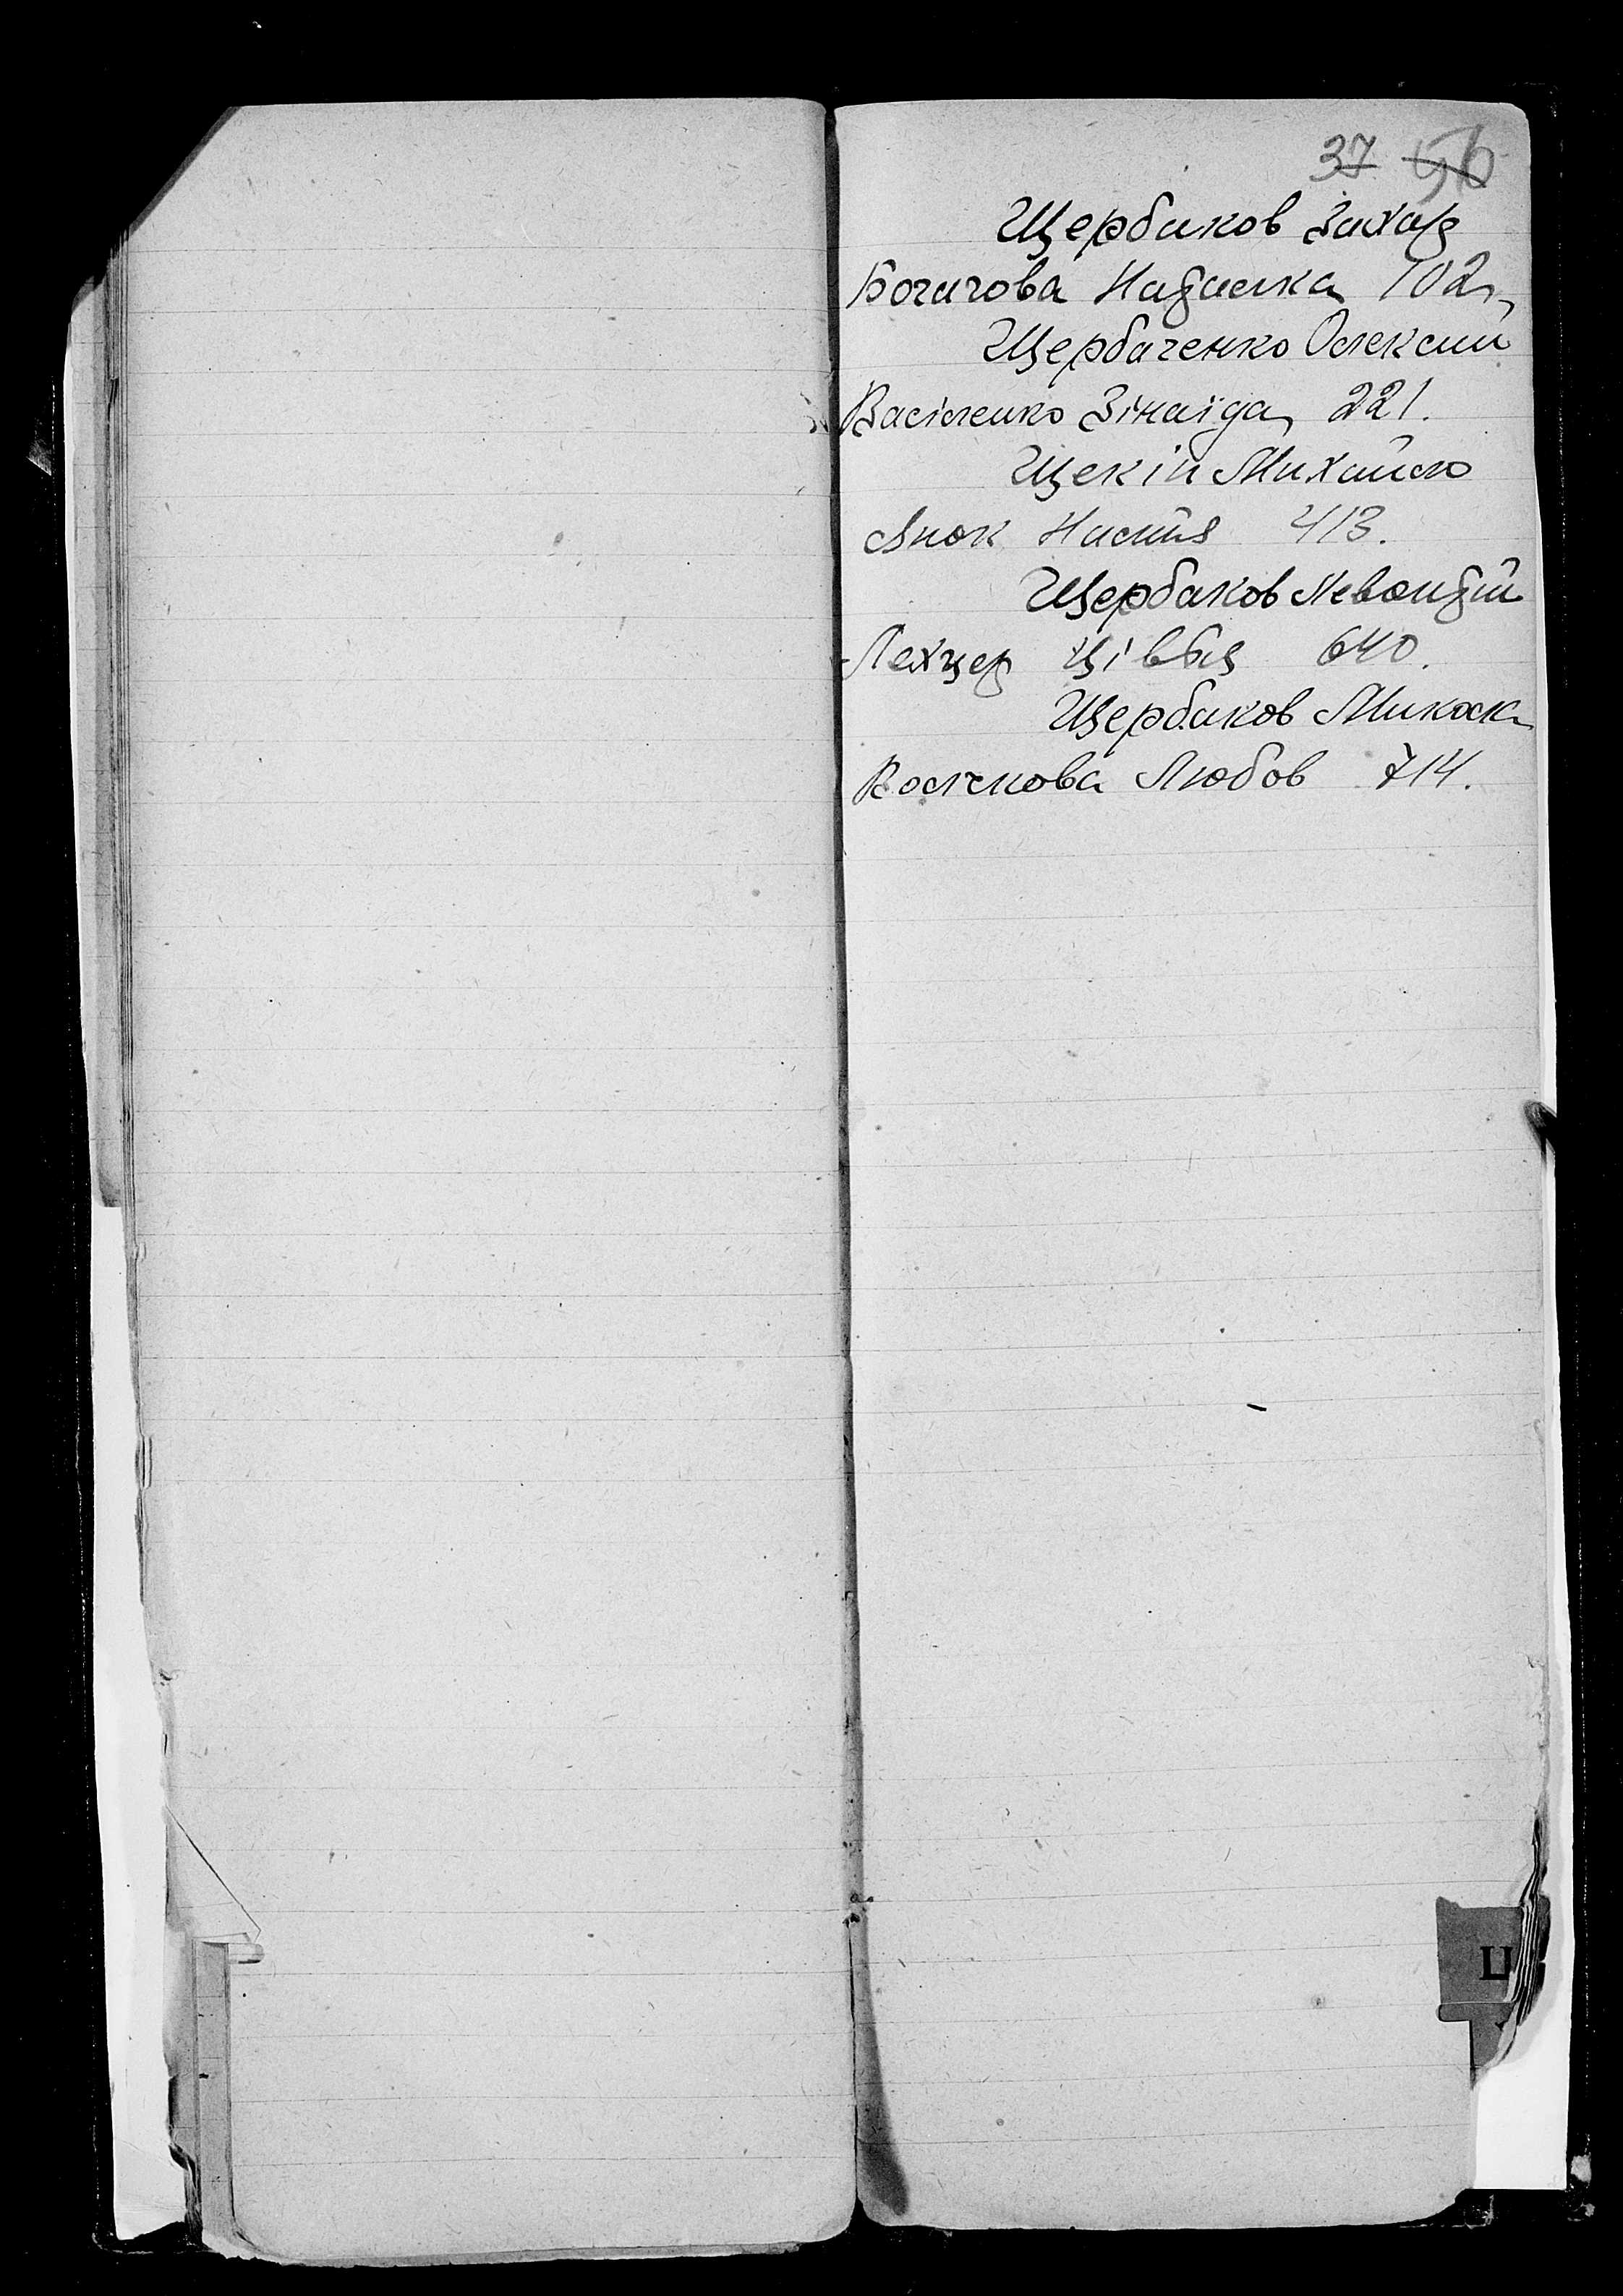 37 56
Щербаков Захар
Богачова Наталка 102
Щербаченко Олексій
Василенко Зінаїда 221.
Щекін Михайло
Янюк Настя 413.
Щербаков
Лехцер Цівья 640.
Щербаков Микола
Волчкова Любов 714.
Ц